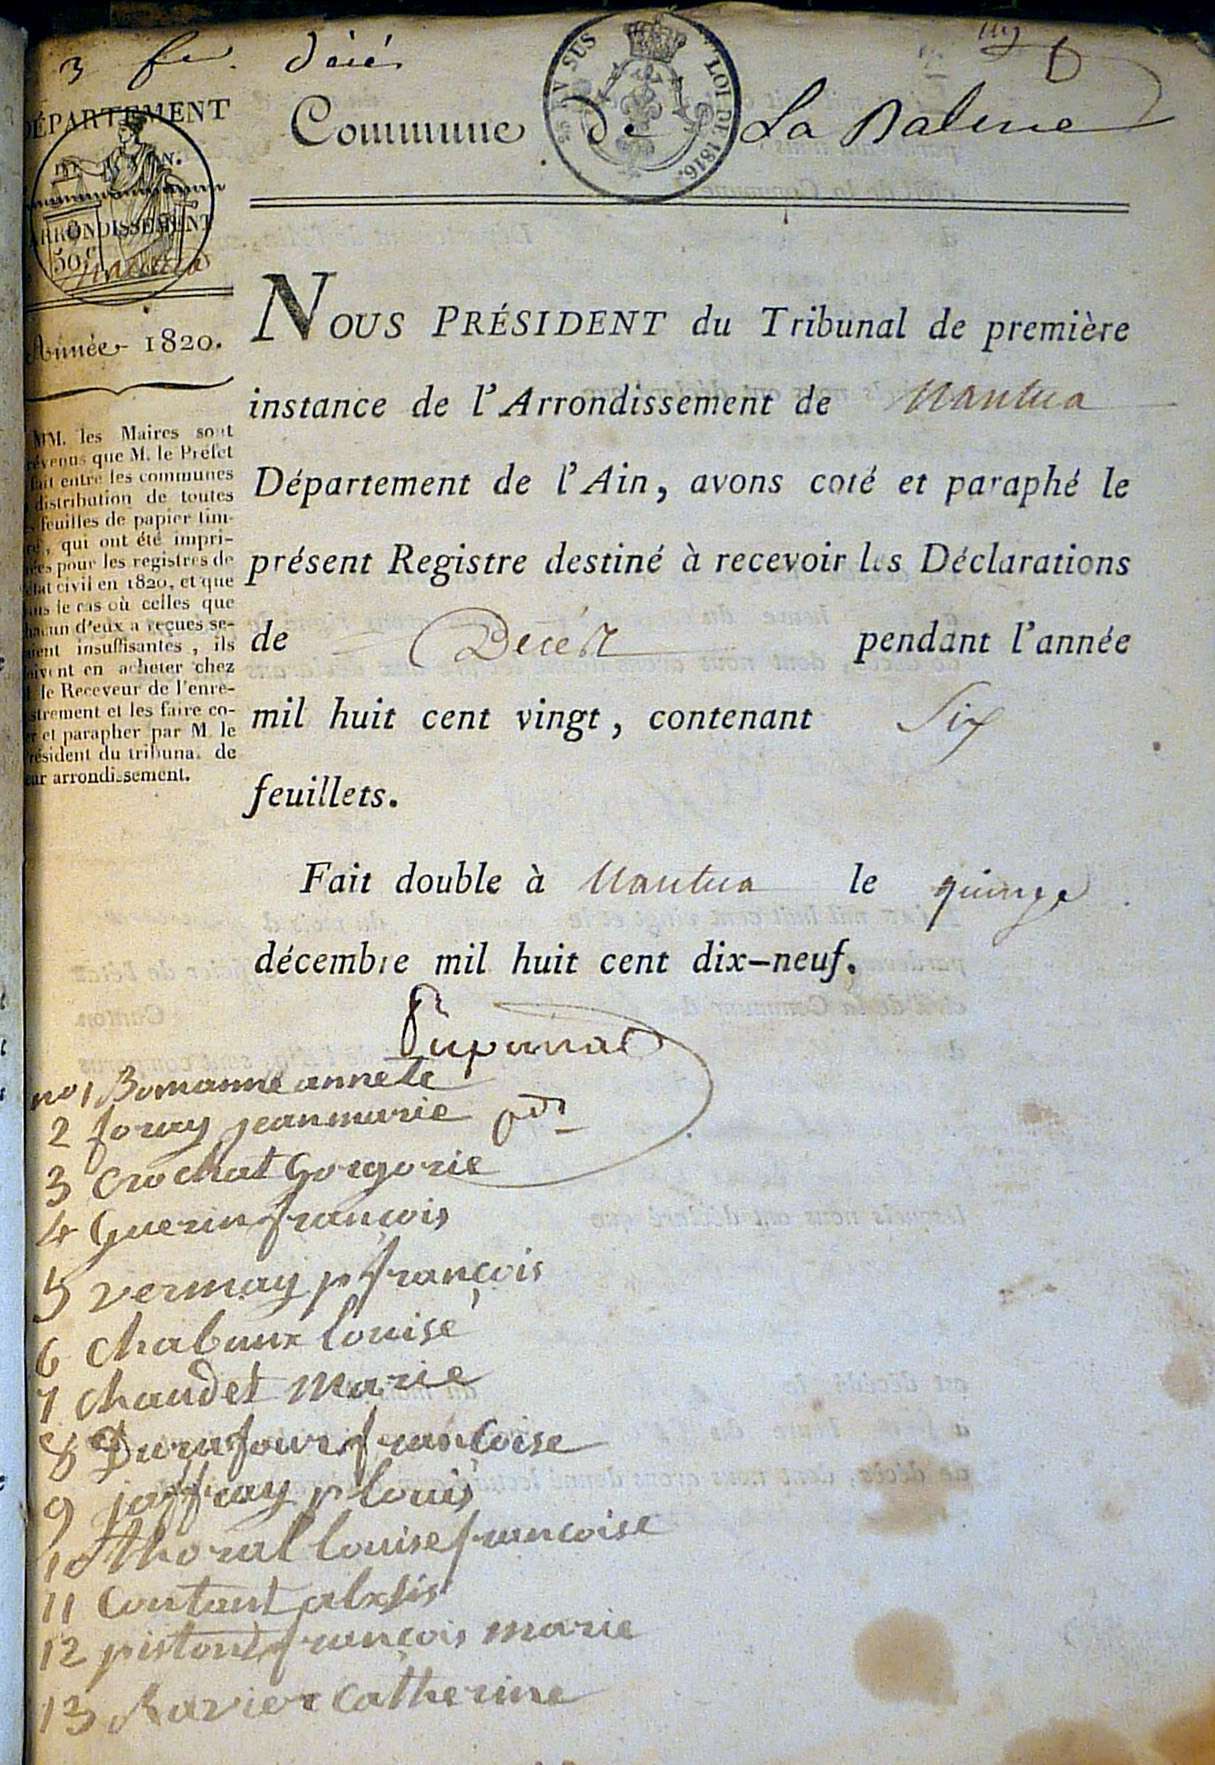 3 fr. Décè
DÉPARTEMENT
Commune de La Balme
EN SUS
LOI DE 1816.
DE L'AIN.
ARRONDISSEMENT
50 c
Nantua
Année 1820.
NOUS PRÉSIDENT du Tribunal de première
instance de l'Arrondissement de Nantua
Département de l'Ain, avons coté et paraphé le
présent Registre destiné à recevoir les Déclarations
de Décès pendant l'année
mil huit cent vingt, contenant Six
feuillets.
Fait double à Nantua le quinze
décembre mil huit cent dix-neuf.
MM. les Maires sont
prévenus que M. le Préfet
fait entre les communes
distribution de toutes
feuilles de papier tim-
bré, qui ont été impri-
mées pour les registres de
état civil en 1820, et que
dans le cas où celles que
chacun d'eux a reçues se-
raient insuffisantes, ils
doivent en acheter chez
le Receveur de l'enre-
gistrement et les faire co-
ter et parapher par M. le
Président du tribunal de
leur arrondissement.
no 1 Bomanne annete
2 foray jeanmarie
3 crochat Gorgorie
4 Guerin françois
5 vermay p françois
6 chabaux louise
7 chaudet Marie
8 Durafour françoise
9 joffray p louis
10 thoral louise francoise
11 Contant alxsis
12 piston françois marie
13 Ravier catherine